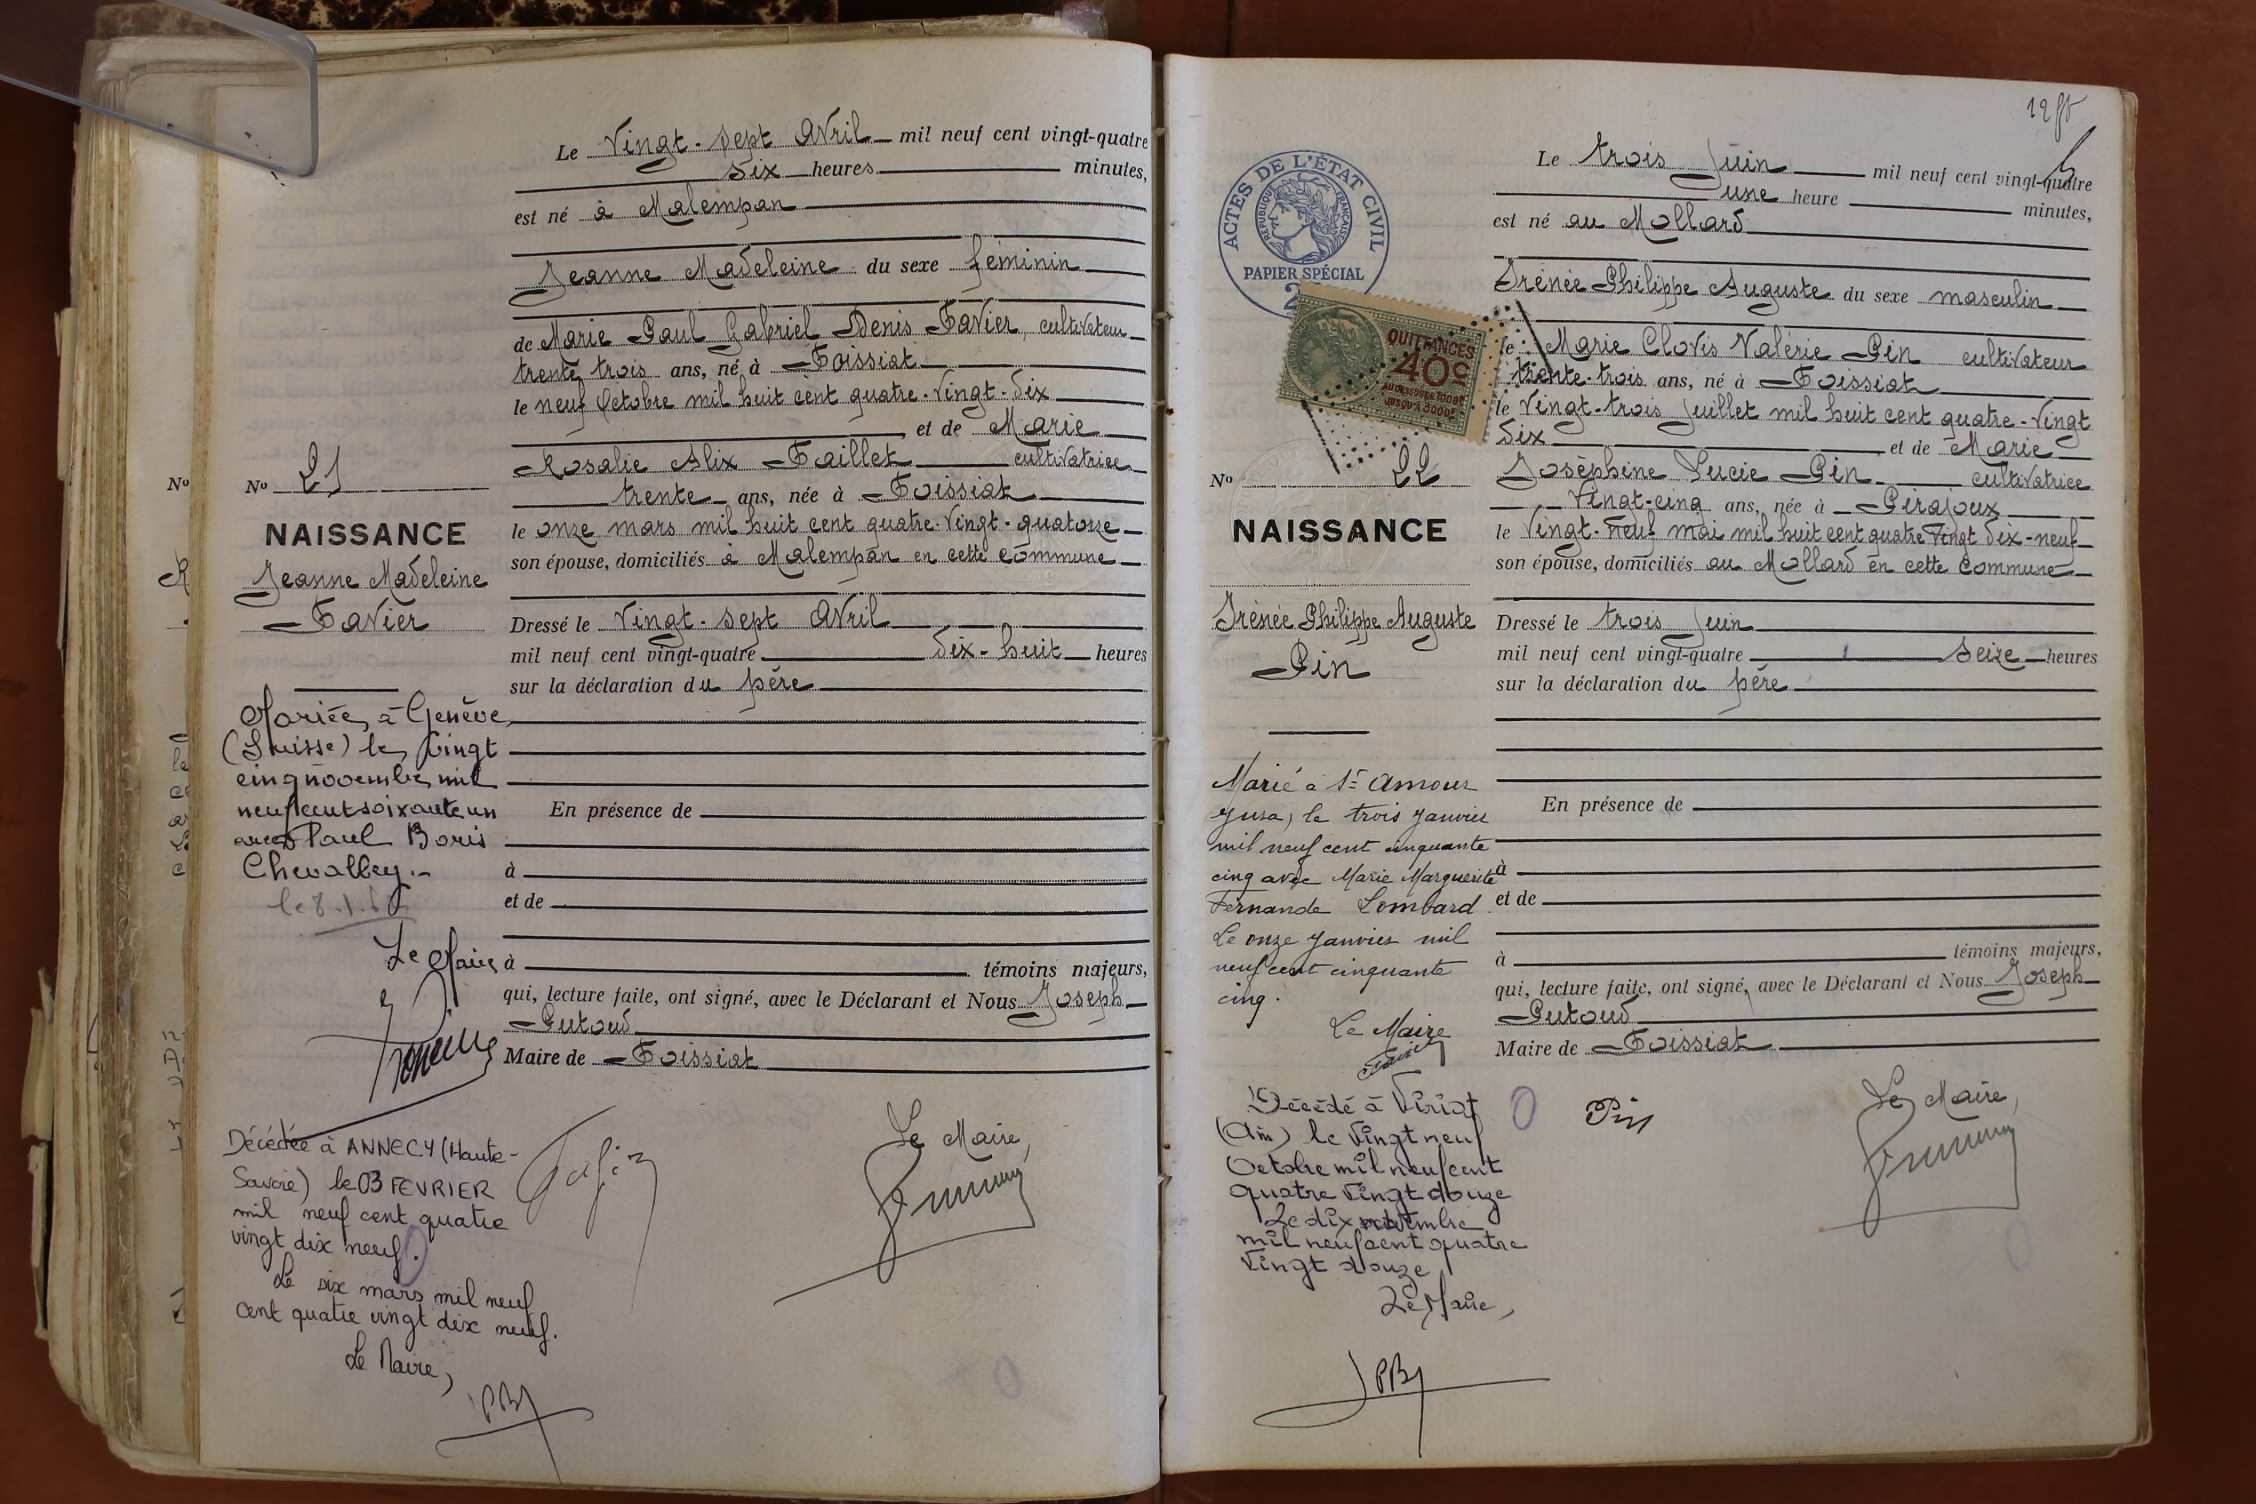 Le Vingt-sept Avril mil neuf cent vingt-quatre
six heures minutes,
est né à Malempan
Jeanne Madeleine du sexe féminin
de Marie Paul Gabriel Denis Favier, cultivateur
trente trois ans, né à Foissiat
le neuf Octobre mil huit cent quatre-vingt-dix
et de Marie
Rosalie Alix Faillet cultivatrice
trente ans, née à Foissiat
le onze mars mil huit cent quatre-vingt-quatorze
son épouse, domiciliés à Malempan en cette commune
Dressé le Vingt-sept Avril
mil neuf cent vingt-quatre dix-huit heures
sur la déclaration du père
En présence de
à
et de
à témoins majeurs,
qui, lecture faite, ont signé, avec le Déclarant et Nous Joseph
Putoud
Maire de Foissiat
Le Maire,
No
No 21
NAISSANCE
Jeanne Madeleine
Favier
Mariée à Genève
(Suisse) le vingt
cinq novembre mil
neuf cent soixante un
avec Paul Boris
Chevalley.-
Le Maire
Décédée à ANNECY (Haute-
Savoie) le 03 FEVRIER
mil neuf cent quatre
vingt dix neuf.
Le six mars mil neuf
cent quatre vingt dix neuf.
Le Maire,
Le trois Juin mil neuf cent vingt-quatre
une heure minutes,
est né au Mollard
Irénée Philippe Auguste du sexe masculin
de Marie Clovis Valérie Pin cultivateur
trente-trois ans, né à Foissiat
le Vingt-trois Juillet mil huit cent quatre-vingt
dix et de Marie
Joséphine Lucie Pin cultivatrice
Vingt-cinq ans, née à Pirajoux
le Vingt-neuf mai mil huit cent quatre vingt dix-neuf
son épouse, domiciliés au Mollard en cette commune
Dressé le trois Juin
mil neuf cent vingt-quatre seize heures
sur la déclaration du père
En présence de
à
et de
à témoins majeurs,
qui, lecture faite, ont signé, avec le Déclarant et Nous Joseph
Putoud
Maire de Foissiat
Le Maire,
Pin
ACTES DE L'ÉTAT CIVIL
RÉPUBLIQUE FRANÇAISE
PAPIER SPÉCIAL
QUITTANCES
40c
AU DESSUS DE 1000F
JUSQU'À 3000F
No 22
NAISSANCE
Irénée Philippe Auguste
Pin
Marié à St Amour
Jura, le trois Janvier
mil neuf cent cinquante
cinq avec Marie Marguerite
Fernande Lombard.
Le onze Janvier mil
neuf cent cinquante
cinq.
Le Maire
Décédé à Viriat
(Ain) le vingt neuf
Octobre mil neuf cent
quatre vingt douze
Le dix novembre
mil neuf cent quatre
vingt douze
Le Maire,